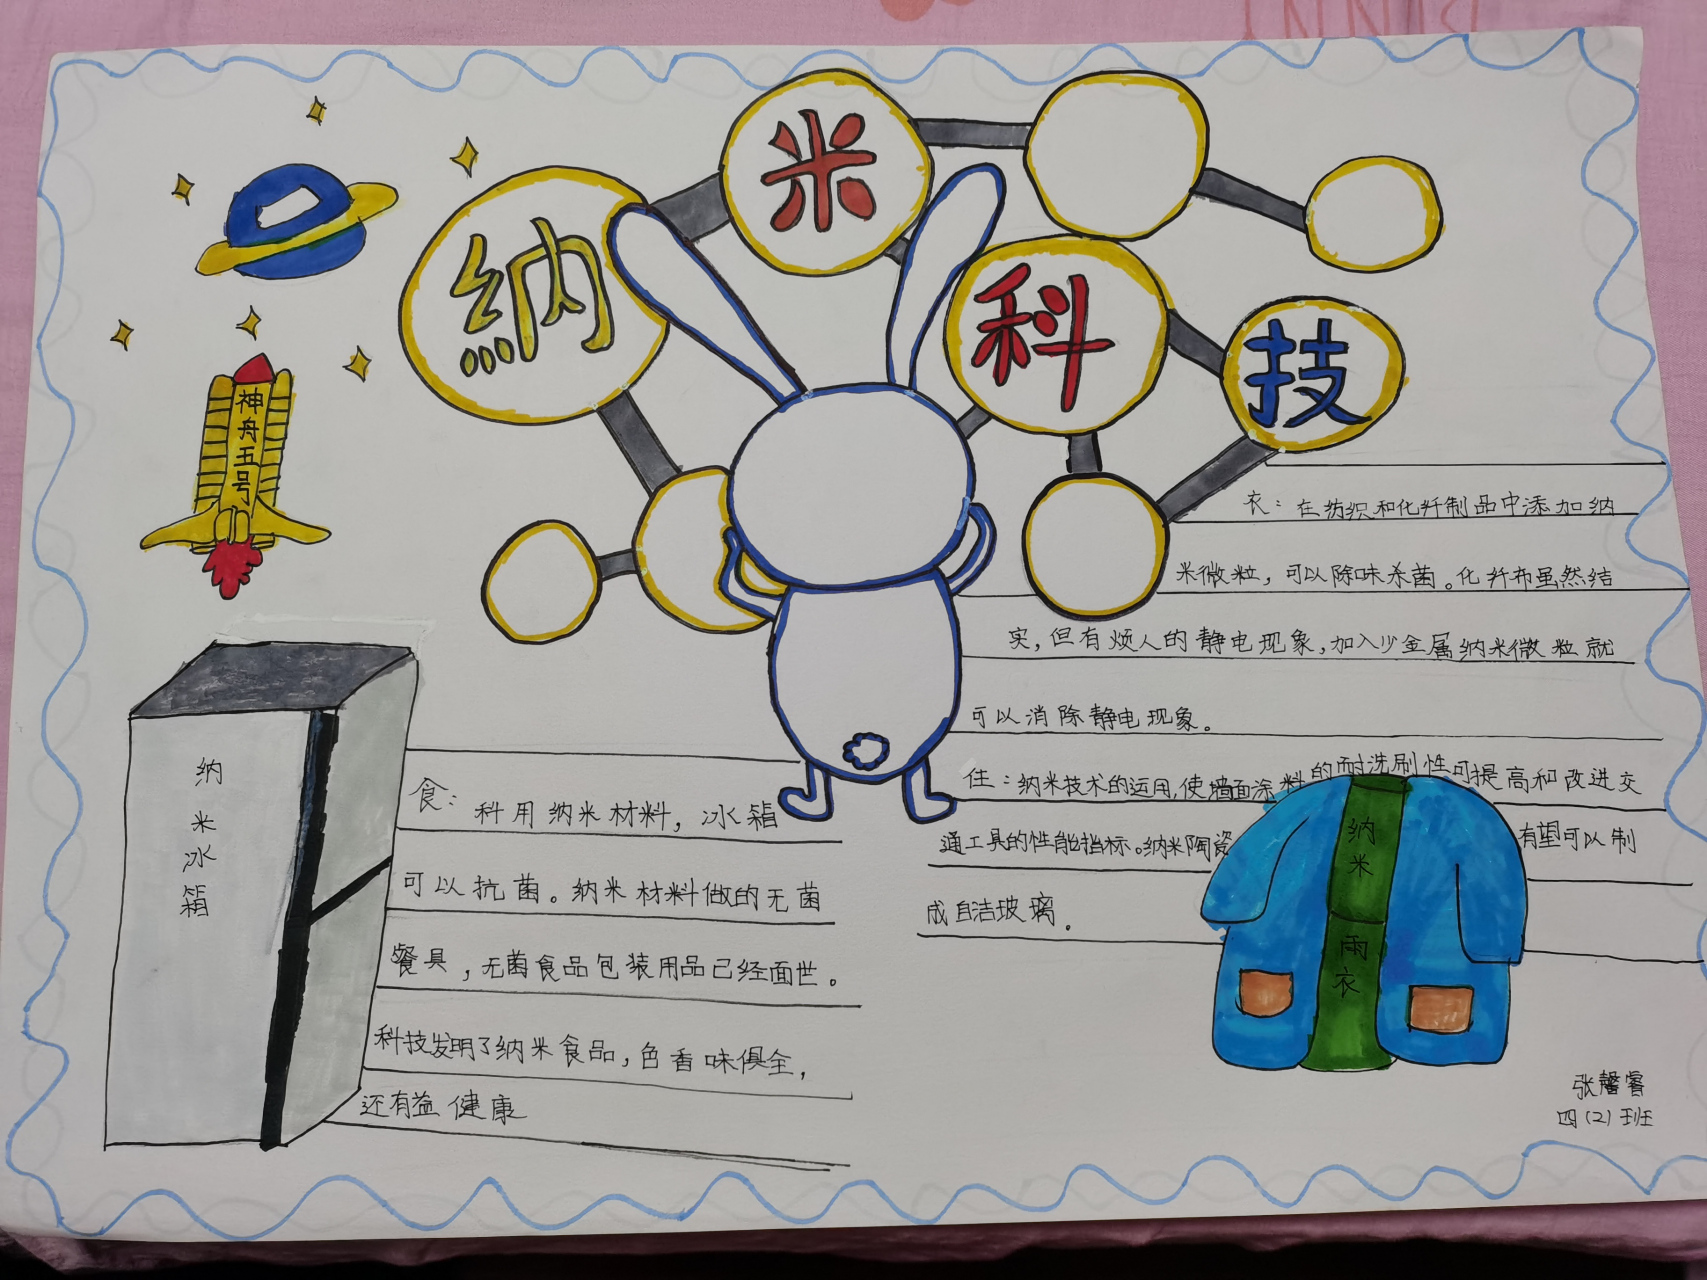 納米科技
神舟五号
衣：在纺织和化纤制品中添加纳
米微粒，可以除味杀菌。化纤布虽然结
实，但有烦人的静电现象，加入少金属纳米微粒就
可以消除静电现象。
住：纳米技术的运用，使墙面涂料的耐洗刷性可提高和改进交
通工具的性能指标。纳米陶瓷 有望可以制
成自洁玻璃。
纳米冰箱
食：科用纳米材料，冰箱
可以抗菌。纳米材料做的无菌
餐具，无菌食品包装用品已经面世。
科技发明了纳米食品，色香味俱全，
还有益健康
纳米雨衣
张馨睿
四（2）班
BUNNI